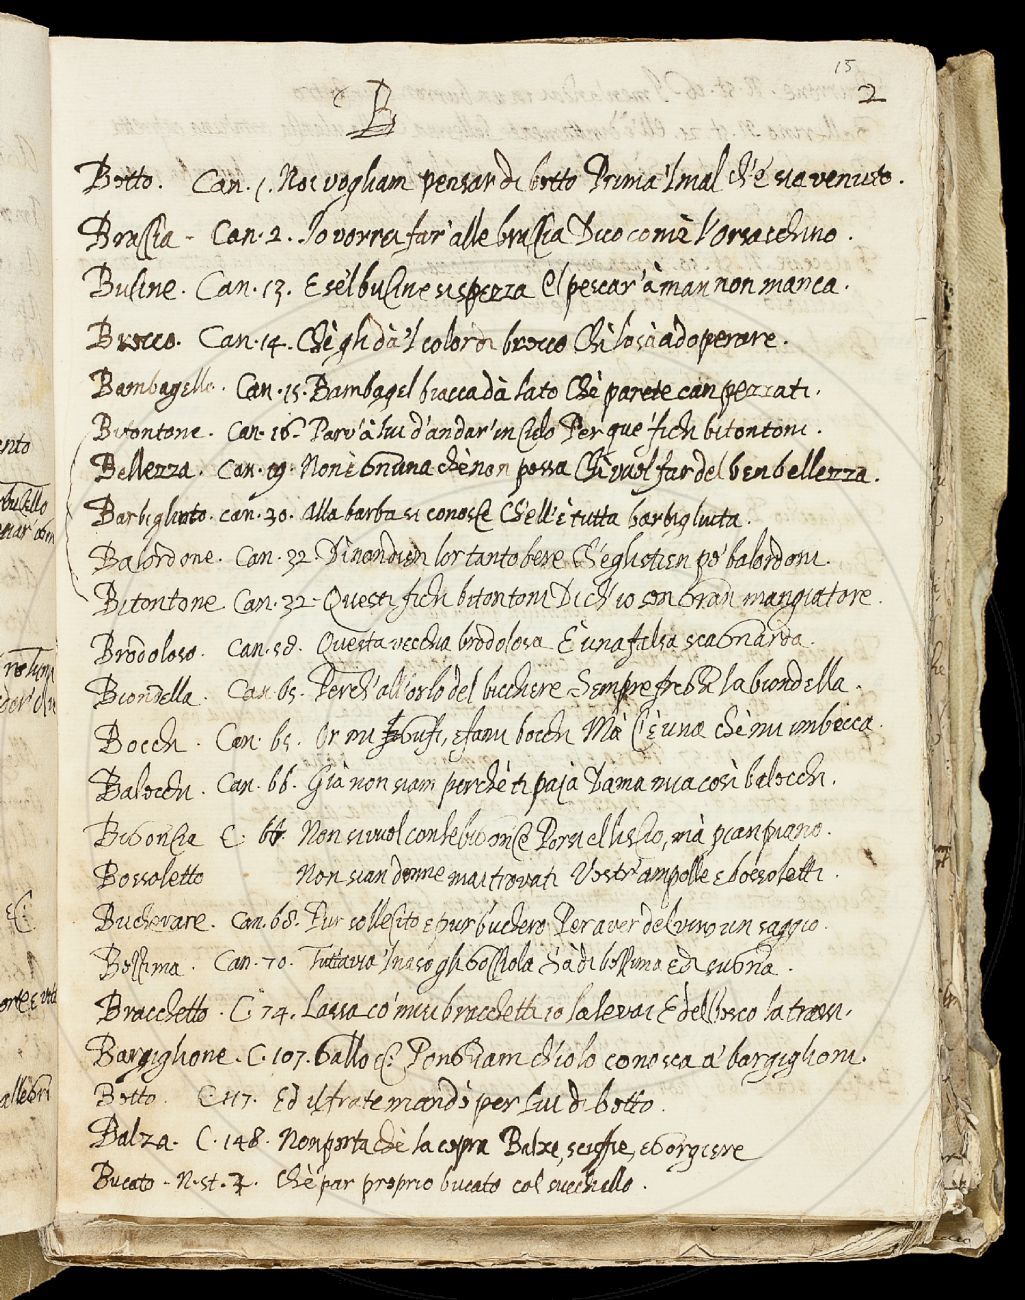 15
2
B
Botto. Can. 1. Noi vogliam pensar di botto Prima 'l mal ch'è sia venuto.
Brassia - Can. 2. Io vorrei far' alle brassia Dico com'è l'orsacchino.
Bucine. Can. 13. E s'el bucine si spezza El pescar' à man non manca.
Brocco. Can. 14. Chè gli dà 'l color di brocco Chi lo sà adoperare.
Bambagello. Can. 15. Bambagel biacca dà lato Chè parete can pezzati.
Bitontone. Can. 16. Parv' à lui d'andar' in Cielo Per que' fichi bitontoni.
Bellezza. Can. 19. Non è gnuna chè non possa Chi vuol far del ben bellezza.
Barbigliuto. Can. 30. Alla barba si conosce Ch'ell' è tutta barbigliuta.
Balordone. Can. 32. lor tanto bere Ch'egli po' balordoni.
Bitontone Can. 32 - Questi fichi bitontoni Dich' io son gran mangiatore.
Brodoloso. Can. 58. Questa vecchia brodolosa È una falsa scagnarda.
Biondella. Can. 65. Perch' all' orlo del bicchere Sempre la biondella.
Bocchi. Can. 65. Or mi e fami bocchi Mà C'è una chè mi imbecca
Balocchi. Can. 66. Già non siam perchè ti paja Dama mia così balocchi.
Bigoncia C. 66. Non si vuol con le bigonce Porsi el liscio, mà pian piano.
Bossoletto Non sian donne mai trovati Vostr' ampolle e bossoletti.
Bucherare. Can. 68. Pur sollecito e pur buchero Per aver del vivo un saggio.
Bossima. Can. 70. Tuttavia 'l naso gli gocciola Sà di bossima ed
Bracchetto. C. 74. Lassa co' miei bracchetti io la levai E del bosco la trassi.
Bargiglione. C. 107. Gallo &c. Pongniam ch'io lo conosca a' bargiglioni.
Botto. C. 117. Ed il frate mandò per lui di botto.
Balza. C. 148. Non porta chè la copra Balze, scuffie, e gorgiere
Bucato - N. st. 3. Chè par proprio bucato col succhiello.